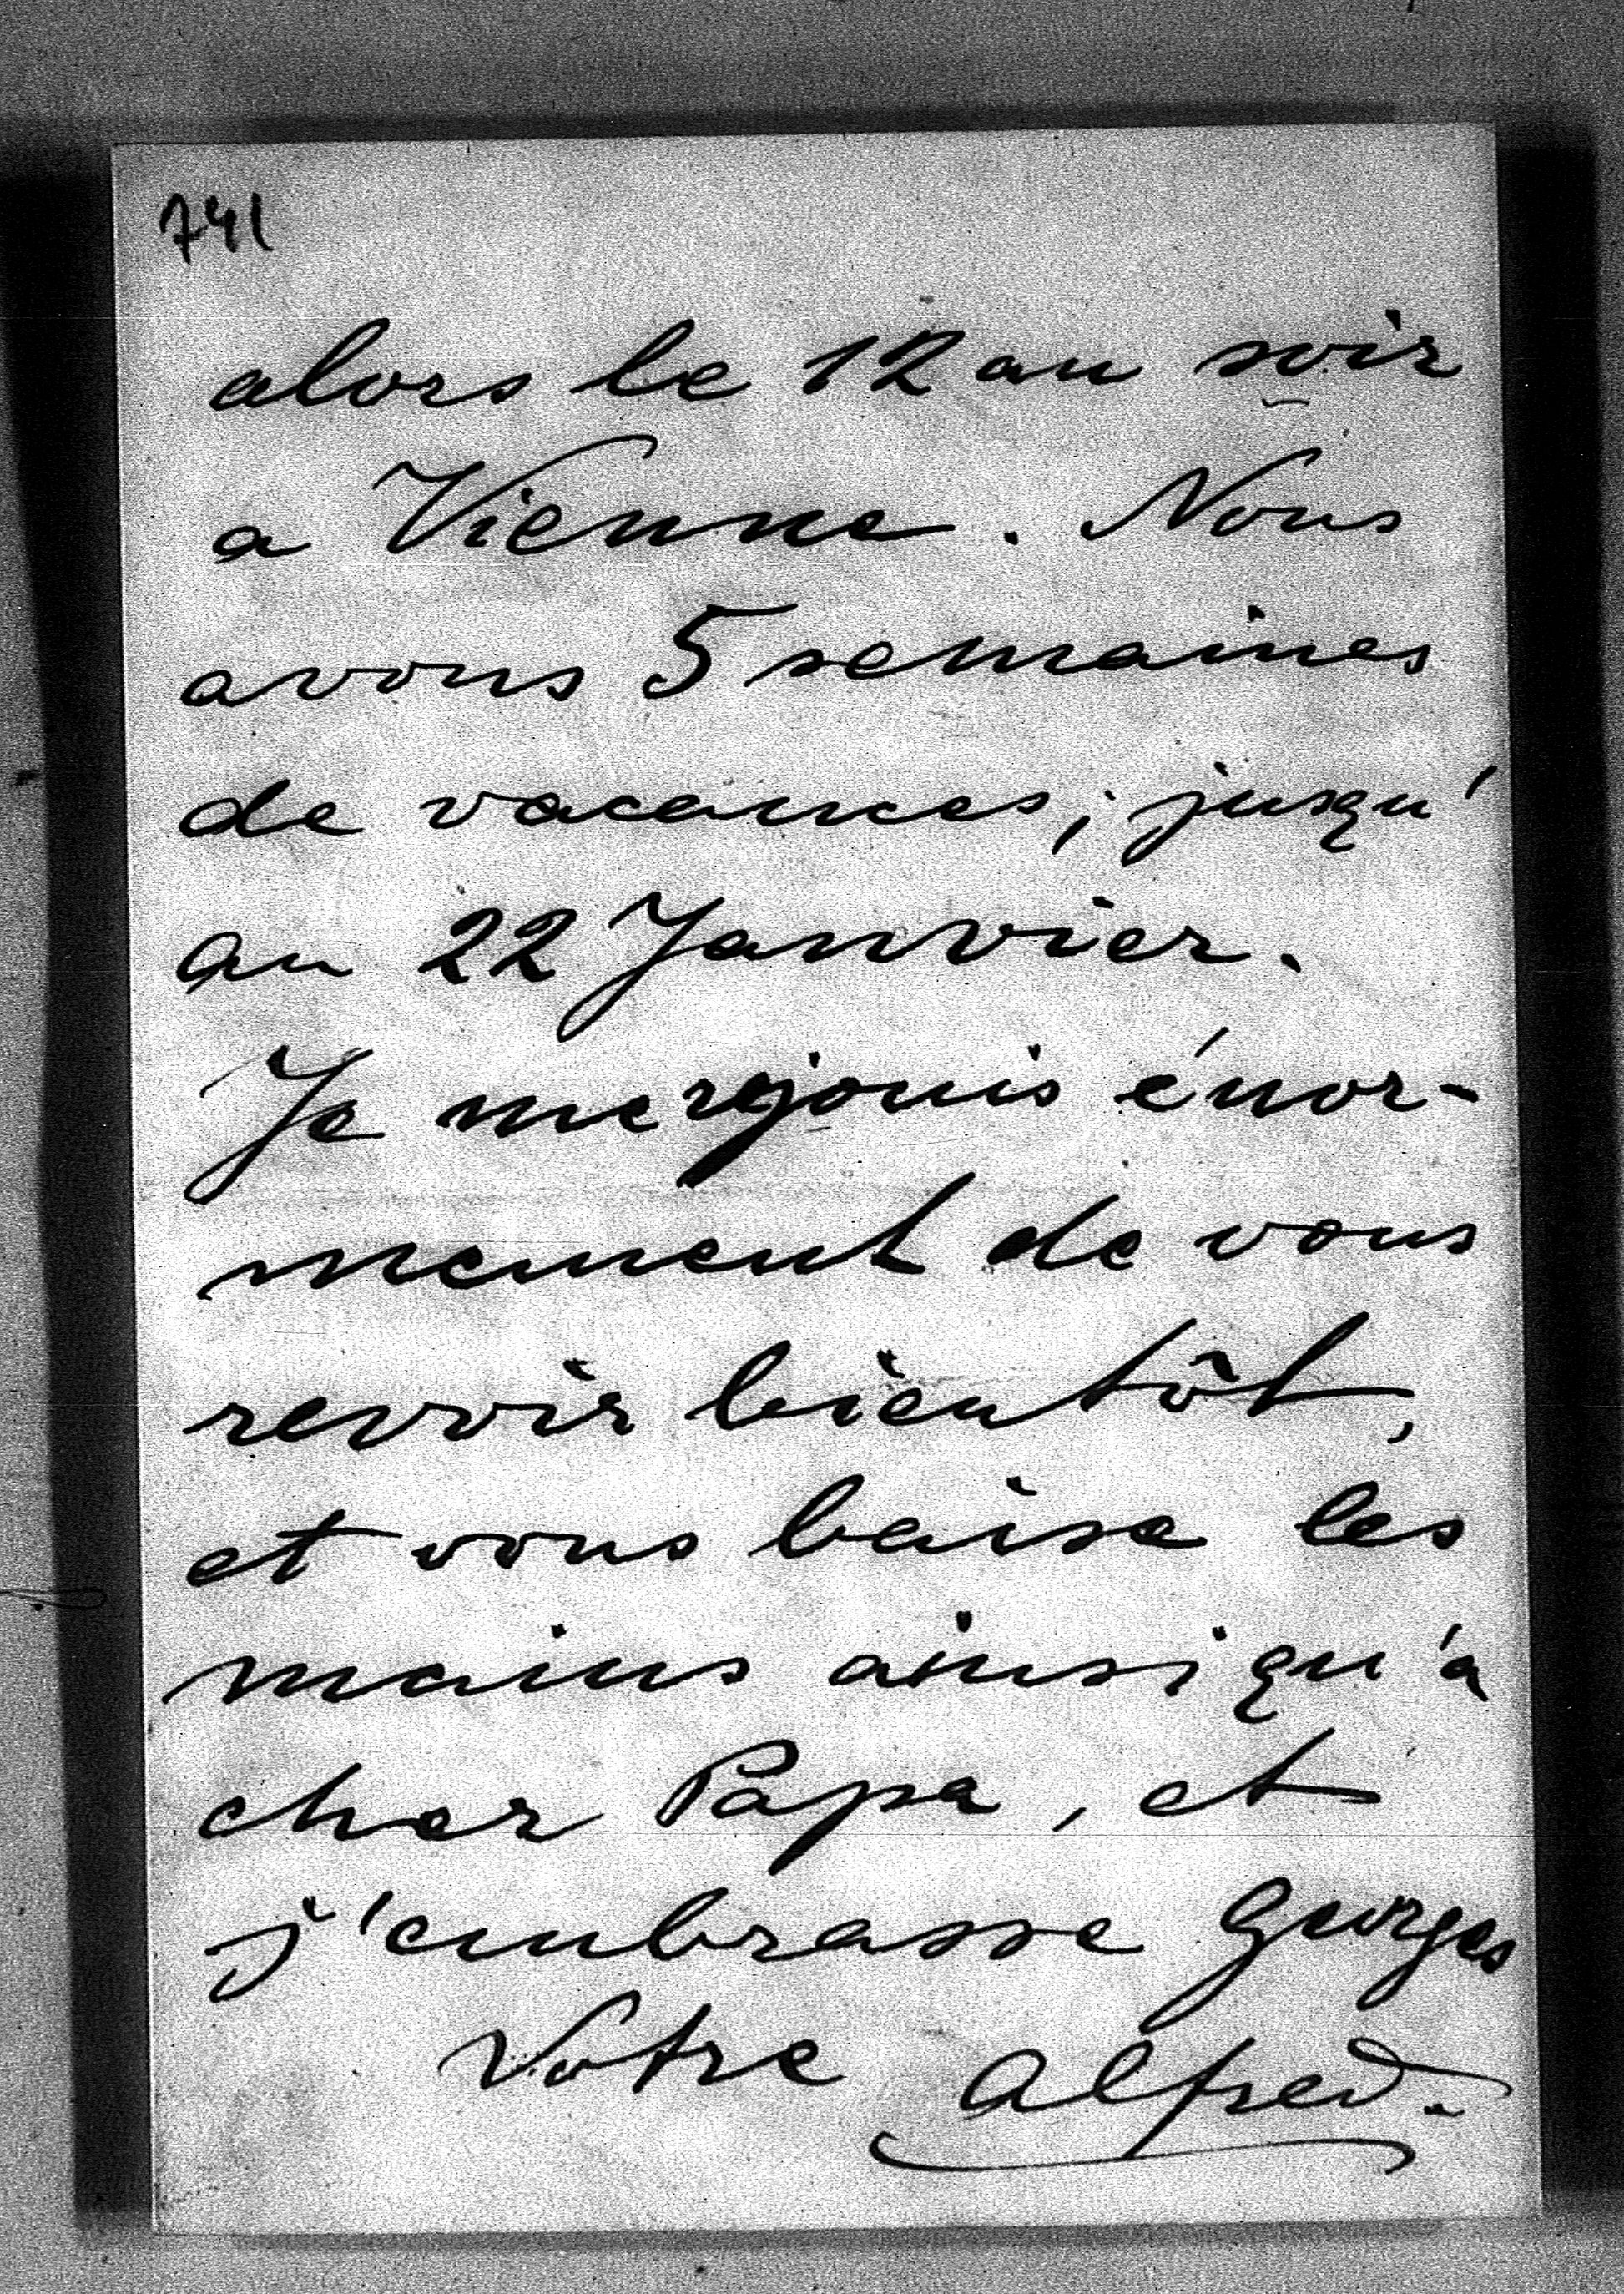 741
alors le 12 au soir
a Vienne. Nous
avons 5 semaines
de vacances, jusqu'
au 22 Janvier.
Je me rejouis énor-
mement de vous
revoir bientôt,
et vous baise les
mains ainsi qu'a
cher Papa, et
j'embrasse Georges
Votre Alfred.